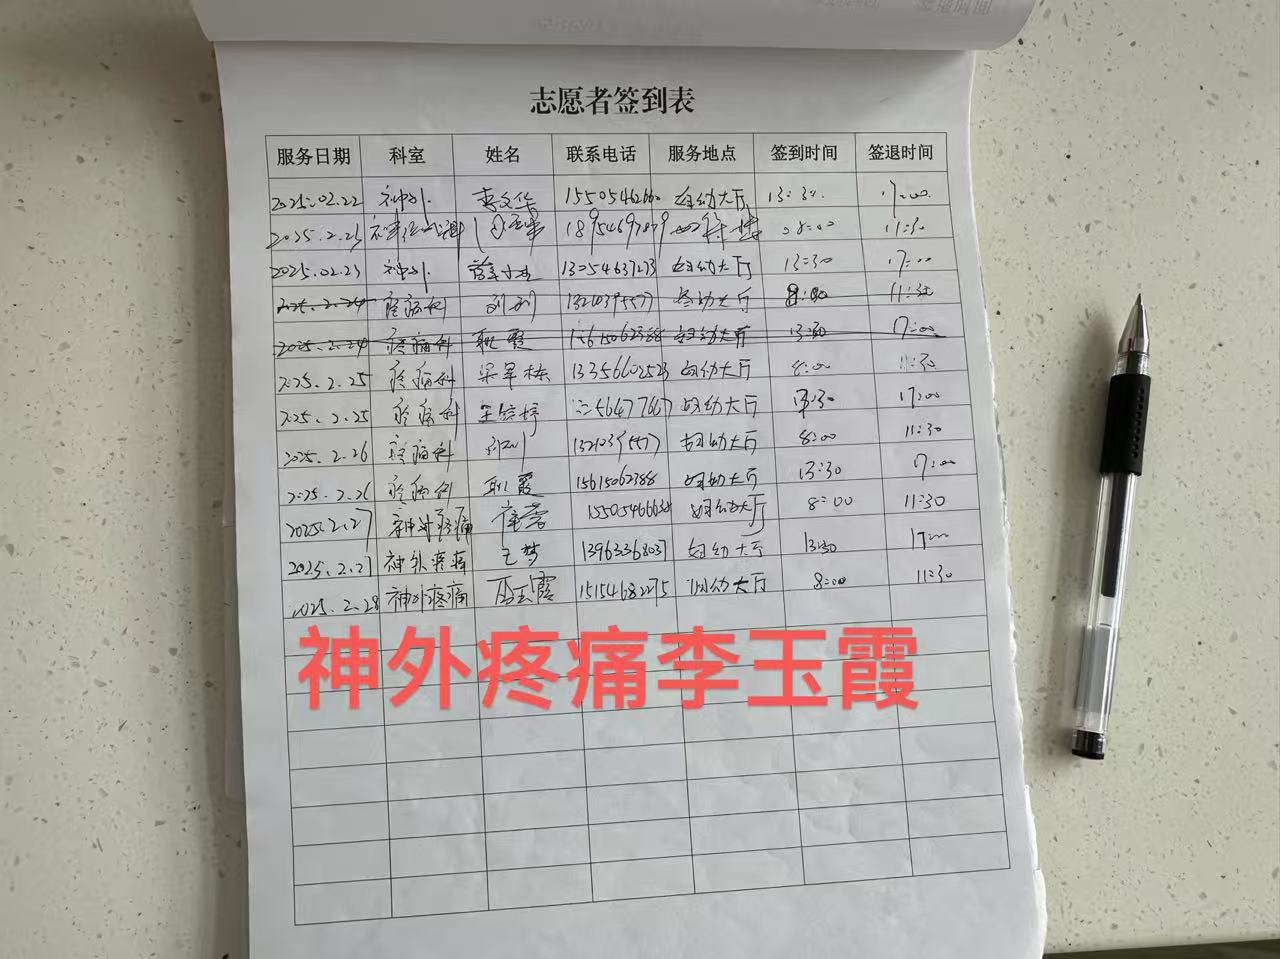 志愿者签到表
服务日期 科室 姓名 联系电话 服务地点 签到时间 签退时间
2025.02.22 神外 李文华 妇幼大厅 13:30 17:00
2025.2.23 08:00 11:30
2025.02.23 神外 13054637273 妇幼大厅 13:30 17:00
2025.2.24 疼痛科 刘利 妇幼大厅 8:00 11:30
2025.2.24 疼痛科 耿霞 15615062388 妇幼大厅 13:30 17:00
2025.2.25 疼痛科 13356602523 妇幼大厅 8:00 11:30
2025.2.25 疼痛科 妇幼大厅 13:30 17:00
2025.2.26 疼痛科 刘利 妇幼大厅 8:00 11:30
2025.2.26 疼痛科 耿霞 15615062388 妇幼大厅 13:30 17:00
2025.2.27 神外疼痛 崔蕾 妇幼大厅 8:00 11:30
2025.2.27 神外疼痛 王梦 13963368037 妇幼大厅 13:30 17:00
2025.2.28 神外疼痛 李玉霞 15154682275 妇幼大厅 8:00 11:30
神外疼痛李玉霞